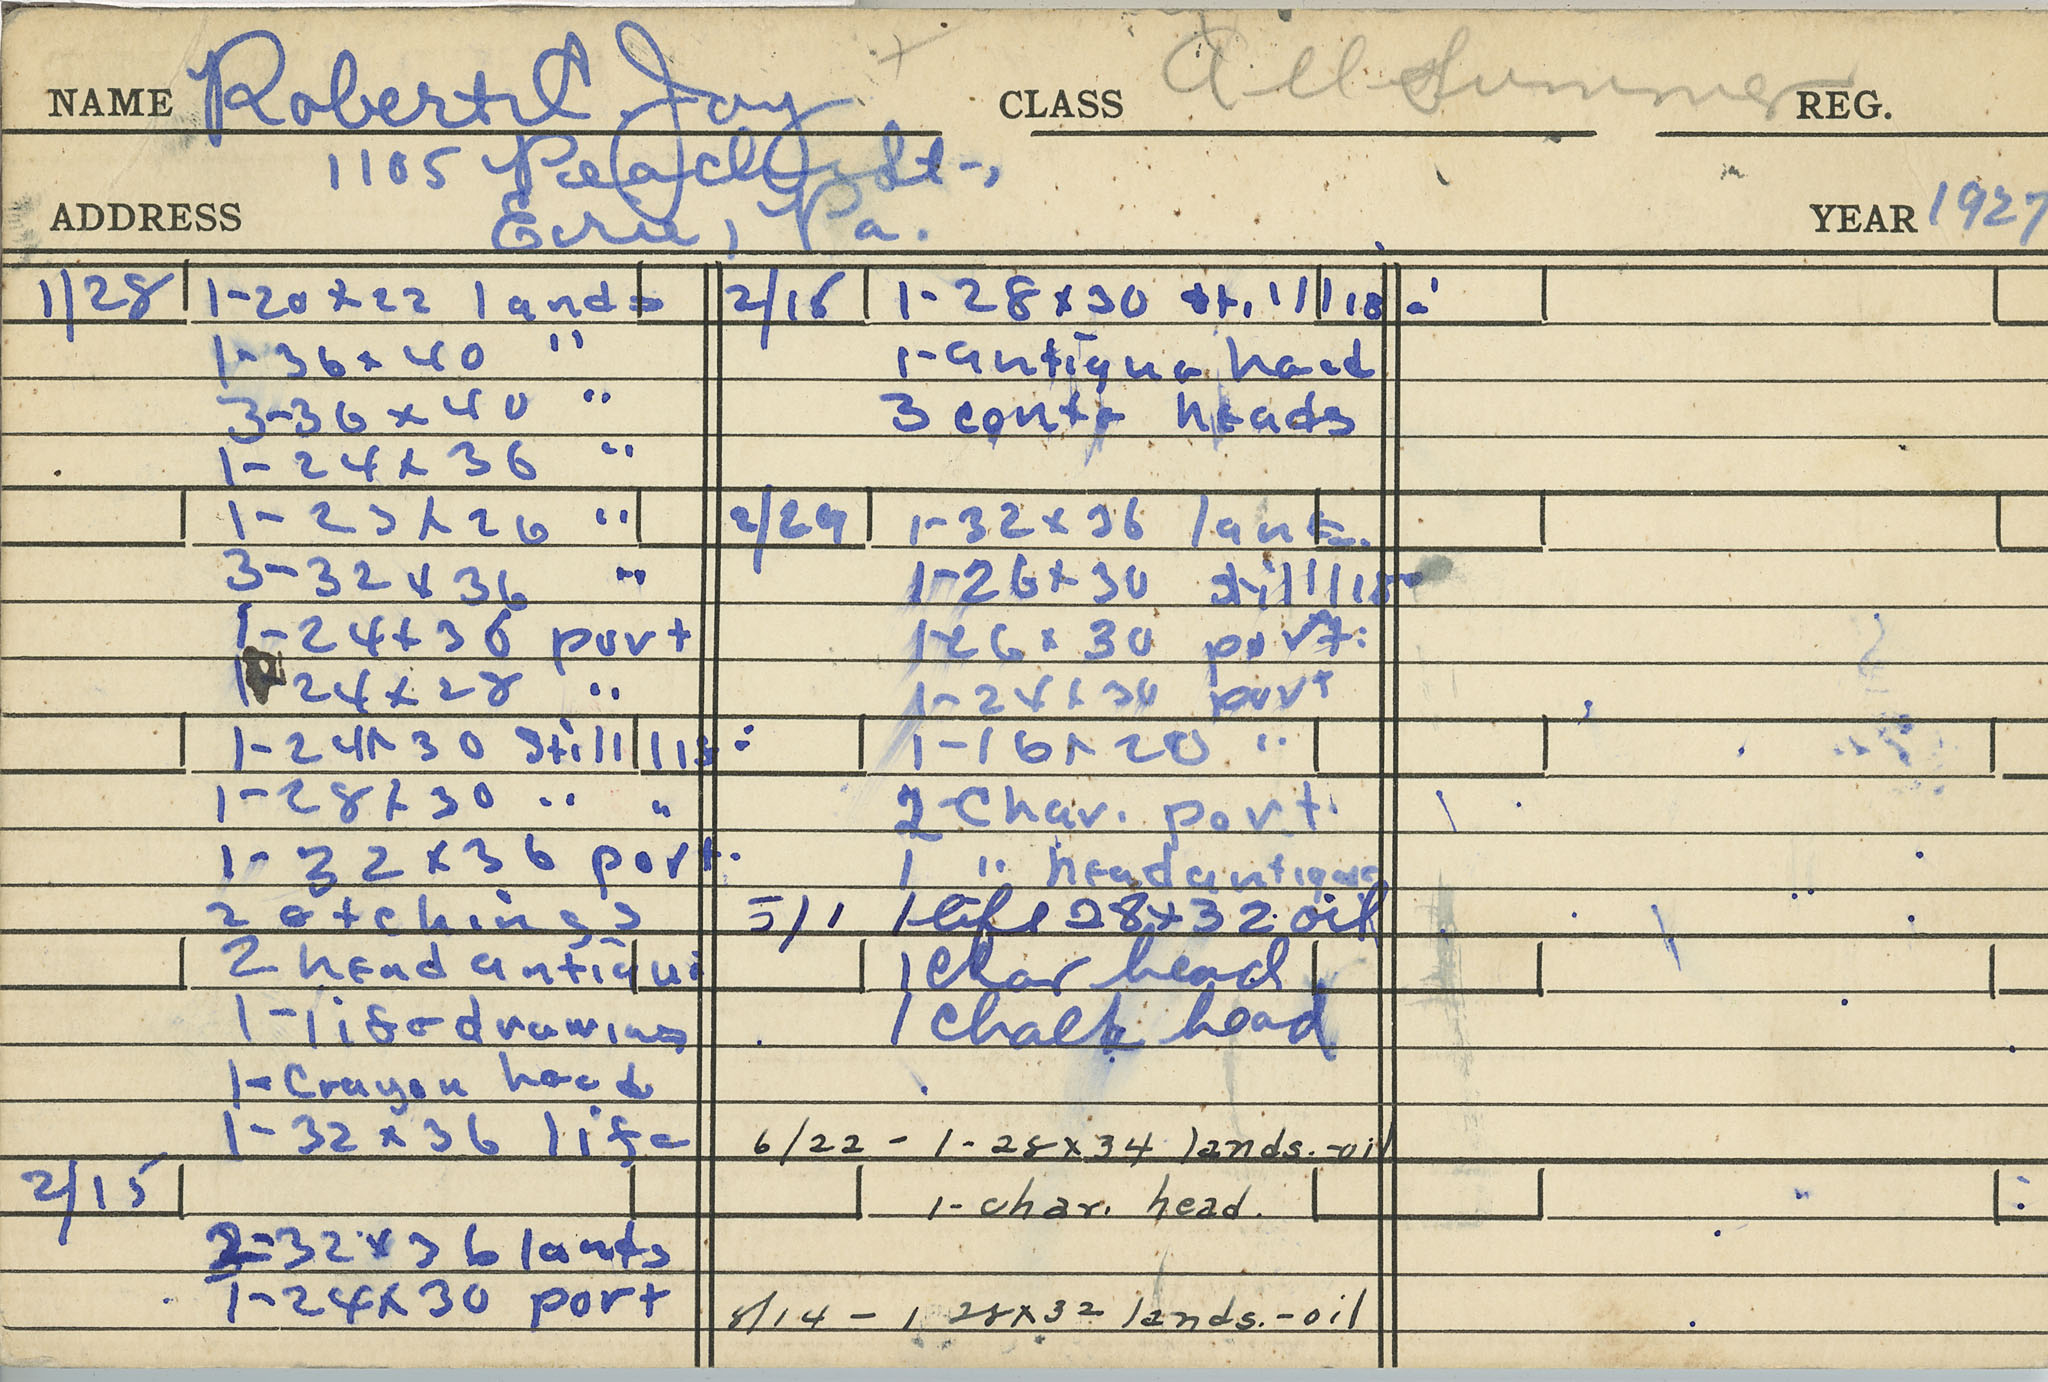 NAME Robert C. Joy CLASS All Summer REG.
1105 Peach St.,
ADDRESS Erie, Pa. YEAR 1927
1/28 1-20x22 lands
1-36x40 "
3-36x40 "
1-24x36 "
1-23x26 "
3-32x36 "
1-24x36 port
1-24x28 "
1-24x30 still life
1-28x30 " "
1-32x36 port.
2 etchings
2 head antique
1-life drawing
1-Crayon head
1-32x36 life
2/15
2-32x36 lands
1-24x30 port
2/16 1-28x30 still life
1-antique head
3 conte heads
2/29 1-32x36 lands.
1-26x30 still life
1-26x30 port.
1-24x30 port
1-16x20 "
2-Char. port.
1 " head antique
5/1 1 life 28x32 oil
1 Char head
1 Chalk head
6/22 - 1-28x34 lands.-oil
1-char. head.
8/14 - 1 28x32 lands.-oil